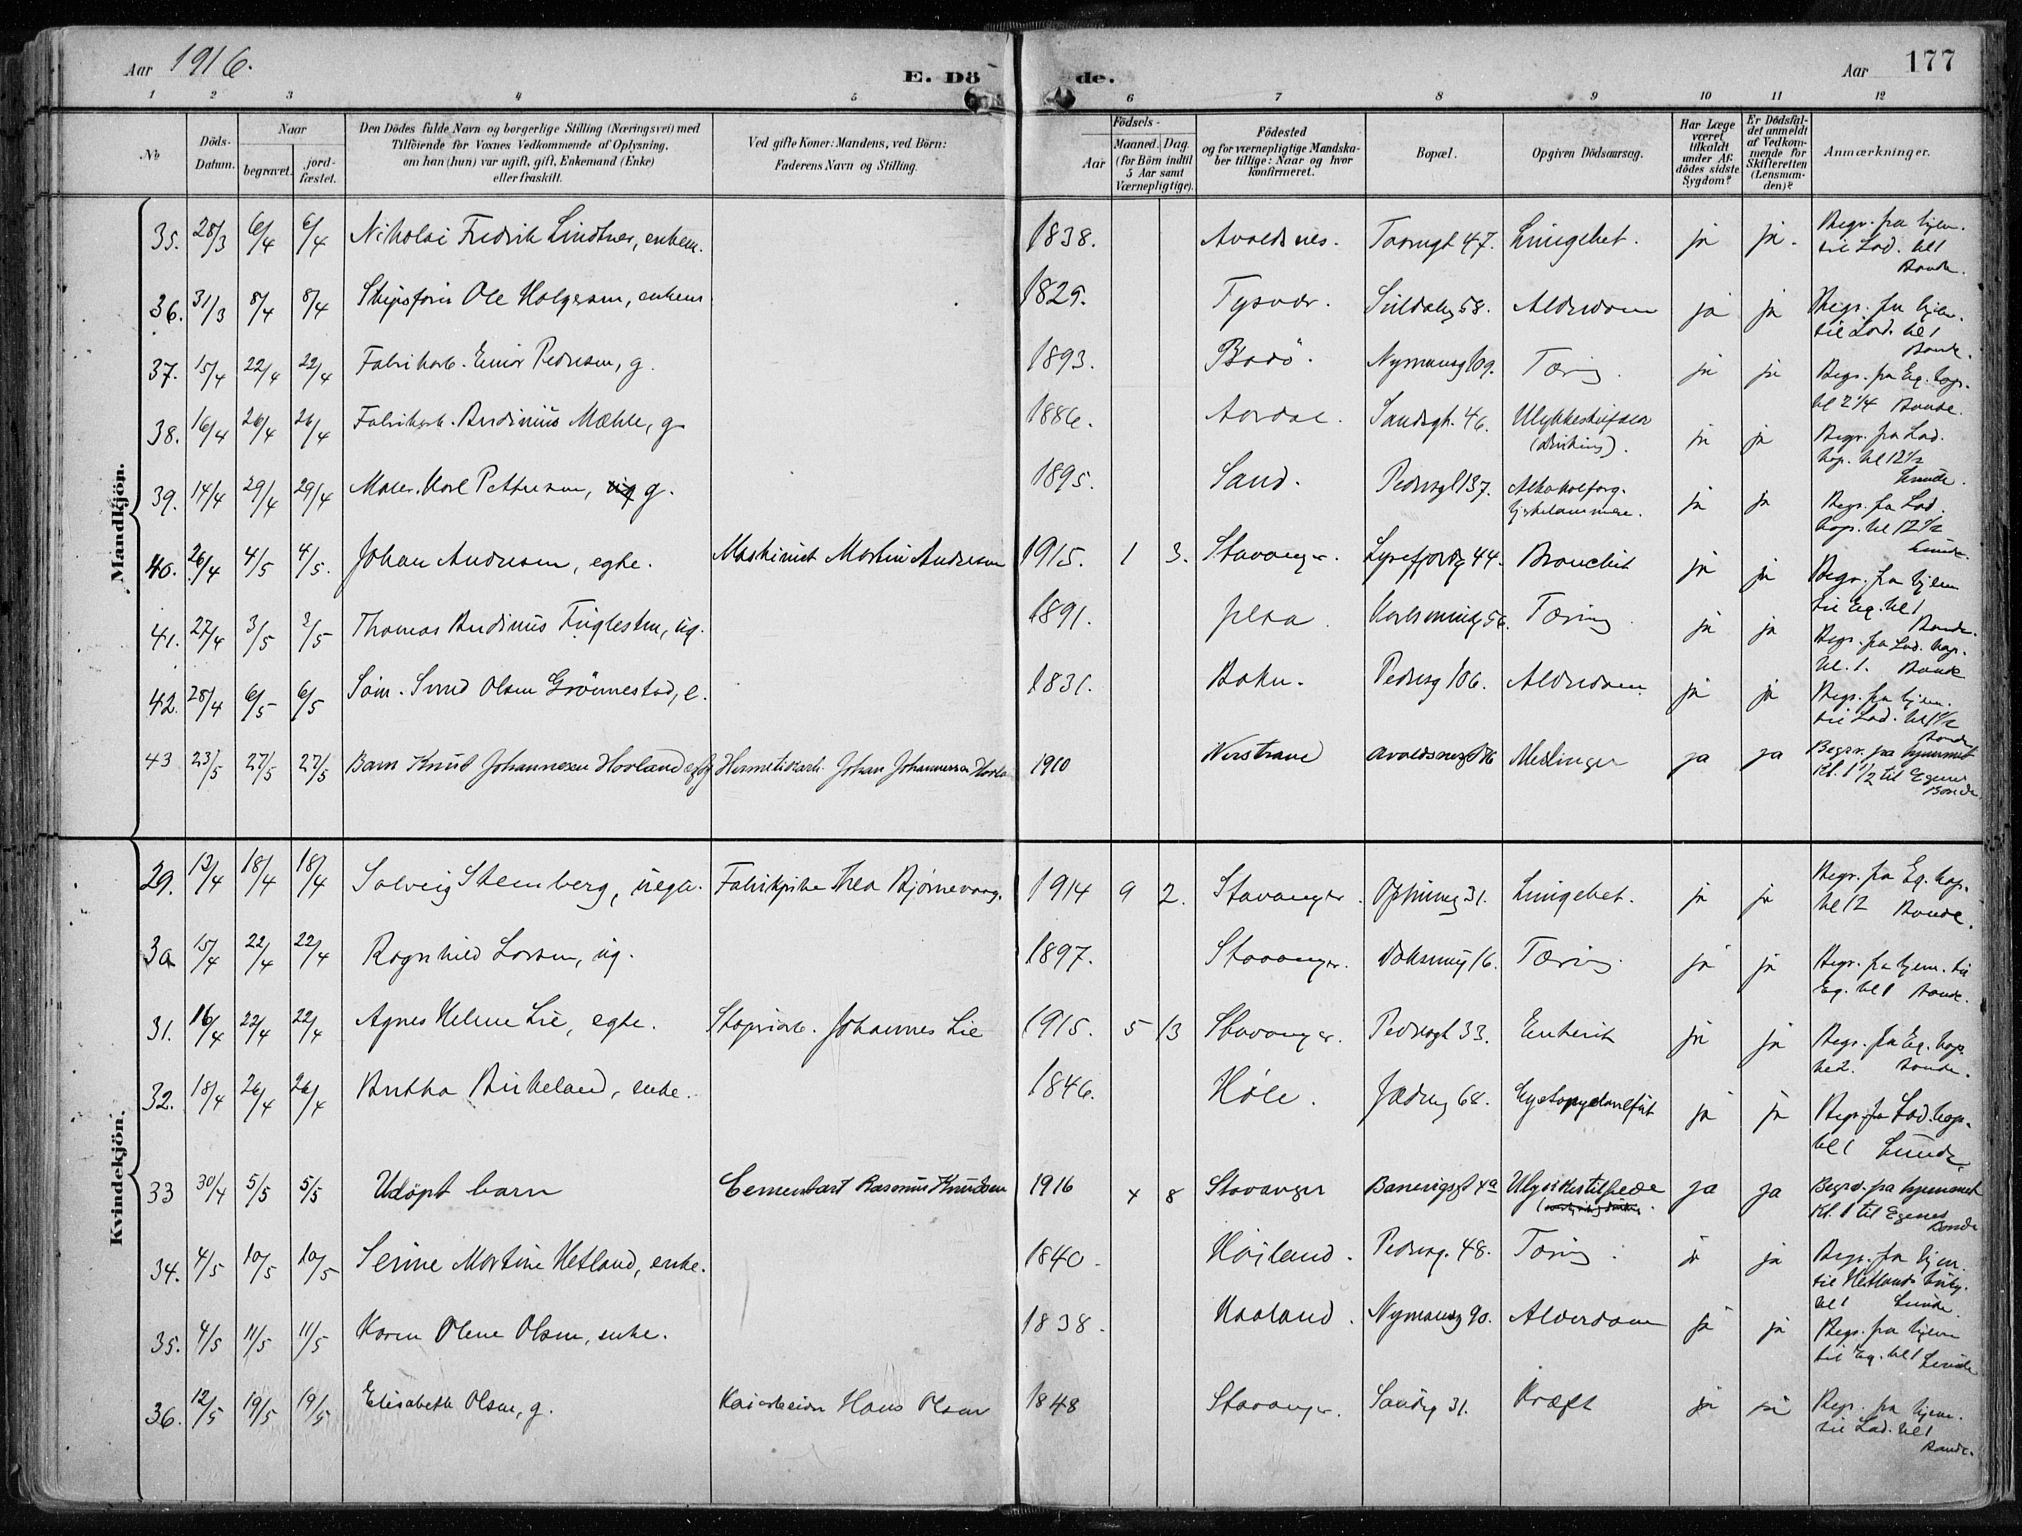 Aar 1916.
E. Döde.
Aar 177
1 2 3 4 5 6 7 8 9 10 11 12
No
Döds-Datum.
Naar begravet. jordfæstet.
Den Dödes fulde Navn og borgerlige Stilling (Næringsvei) med
Tilföiende for Voxnes Vedkommende af Oplysning.
om han (hun) var ugift, gift, Enkemand (Enke)
eller fraskilt.
Ved gifte Koner: Mandens, ved Börn:
Faderens Navn og Stilling.
Födsels-
Aar Maaned. Dag.
(for Börn indtil
5 Aar samt
Værnepligtige).
Födested
og for værnepligtige Mandska-
ber tillige: Naar og hvor
konfirmeret.
Bopæl.
Opgiven Dödsaarsag.
Har Læge
været
tilkaldt
under Af-
dödes sidste
Sygdom?
Er Dödsfal-
det anmeldt
af Vedkom-
mende for
Skifteretten
(Lensman-
den)?
Anmærkninger.
Mandkjön.
35. 28/3 6/4 6/4 Nikolai Fredrik Lindtner, enkem. 1838. Avaldsnes. Taarngt 47. Lungebet. ja ja. Begr. fra hjem.
til Lad. kl 1
Bonde.
36. 31/3 8/4 8/4 Skipsfører Ole Holgersen, enkem 1825. Tysvær. Suldalsg 58. Alderdom ja ja Begr. fra hjem.
til Lad. kl 1
Bonde.
37. 15/4 22/4 22/4 Fabrikarb. Einar Pedersen, g. 1893. Bodö. Nymansg 109. Tæring. ja ja Begr. fra Eg. kap.
kl 2 1/4 Bonde.
38. 16/4 26/4 26/4 Fabrikarb. Berdinius Mæhle, g 1886. Aardal. Sandsgt. 46. Ulykkestilfælde
(drukning). ja ja Begr. fra Lad.
kap. kl 12 1/2
Lunde.
39. 14/4 29/4 29/4 Maler. Karl Pettersen, g. 1895. Sand. Pedersgt 137. Alkoholforg.
hjertelammelse. ja ja Begr. fra Lad.
kap. kl 12 1/2
Lunde.
40. 26/4 4/5 4/5. Johan Andresen, egte. Maskinist Martin Andresen 1915. 1 3. Stavanger. Lysefjordg 44. Bronchit ja ja Begr. fra hjem
til Eg. kl 1
Bonde.
41. 27/4 3/5 3/5 Thomas Berdinius Fuglesten, ug. 1891. Jelsa. Karlsminneg 56. Tæring. ja ja Begr. fra Lad. kap.
kl. 1. Bonde
42. 28/4 6/5 6/5 Søm. Svend Olsen Grönnestad, e. 1831. Bokn. Pedersg 106. Alderdom ja ja Begr. fra hjem.
til Lad. kl 1 1/2
Bonde
43 23/5 27/5 27/5 Barn Knut Johannesen Hovland Hermetikarb. Johan Johannessen Hovla 1910 Nerstrand Avaldsnesgt Meslinger ja ja Begrav. fra hjemmet
Kl. 1 1/2 til Egenes
Bonde.
Kvindekjön.
29. 13/4 18/4 18/4 Solveig Stemberg, uegte. Fabrikpike Thea Bjørnevaag. 1914 9 2. Stavanger. Opheimsg 31. Lungebet. ja ja Begr. fra Eg. kap.
kl 12 Bonde.
30 15/4 22/4 22/4 Ragnhild Larsen, ug. 1897. Stavanger. Vaksmug 16. Tæring. ja ja Begr. fra hjem. til
Eg. kl 1 Bonde.
31. 16/4 22/4 22/4 Agnes Helene Lie, egte. Støperiarb. Johannes Lie 1915. 5 13 Stavanger. Pedersgt 33. Enterit ja ja Begr. fra Eg. kap.
kl 2. Bonde.
32. 18/4 26/4 26/4 Bertha Birkeland, enke. 1846. Høle. Jædersg 68. ja ja Begr. fra Lad. kap.
kl 1 Lunde
33 30/4 5/5 5/5 Udöpt barn Cementarb Rasmus Knudsen 1916 4 8 Stavanger Banevigsgt 4a Ulykkestilfælde ja ja Begrav. fra hjemmet
Kl. 1 til Egenes
Bonde
34. 4/5 10/5 10/5 Serine Martine Hetland, enke. 1840. Höiland. Pedersg. 48. Tæring. ja ja Begr. fra hjem.
til Hetlands kirkeg.
kl 1 Lunde.
35. 4/5 11/5 11/5 Karen Olene Olsen, enke. 1838. Haaland. Nymansg 90. Alderdom ja ja Begr. fra hjem
til Eg. kl 1 Lunde
36. 12/5 19/5 19/5 Elisabeth Olsen, g. Kaiarbeider Hans Olsen 1848 Stavanger. Sandsg 31. Kræft ja ja Begr. fra hjem.
til Lad. kl 1
Bonde.